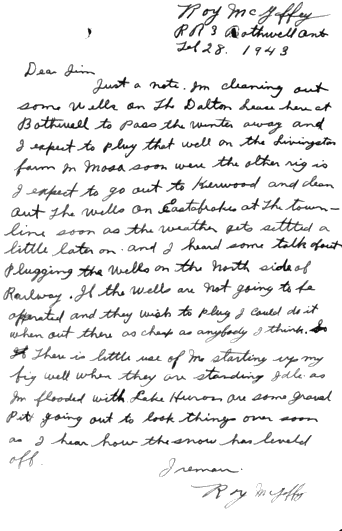 Roy McGaffey
RR 3 Bothwell Ont
Feb 28. 1943
Dear Jim
Just a note. Im cleaning out
some wells on The Dalton lease here at
Bothwell to pass the winter away and
I expect to plug that well on the Livingston
farm in Mosa soon were the other rig is
I expect to go out to Kerwood and clean
out The wells on at The town-
line soon as the weather gets settled a
little later on. and I heard some talk about
plugging the wells on the North side of
Railway. If the wells are not going to be
operated and they wish to plug I could do it
when out there as cheap as anybody I think. So
There is little use of me starting up my
big well when they are standing Idle as
Im flooded with Lake Huron or some gravel
Pit going out to look things over soon
as I hear how the snow has leveld
off.
I remain.
Roy McGaffey